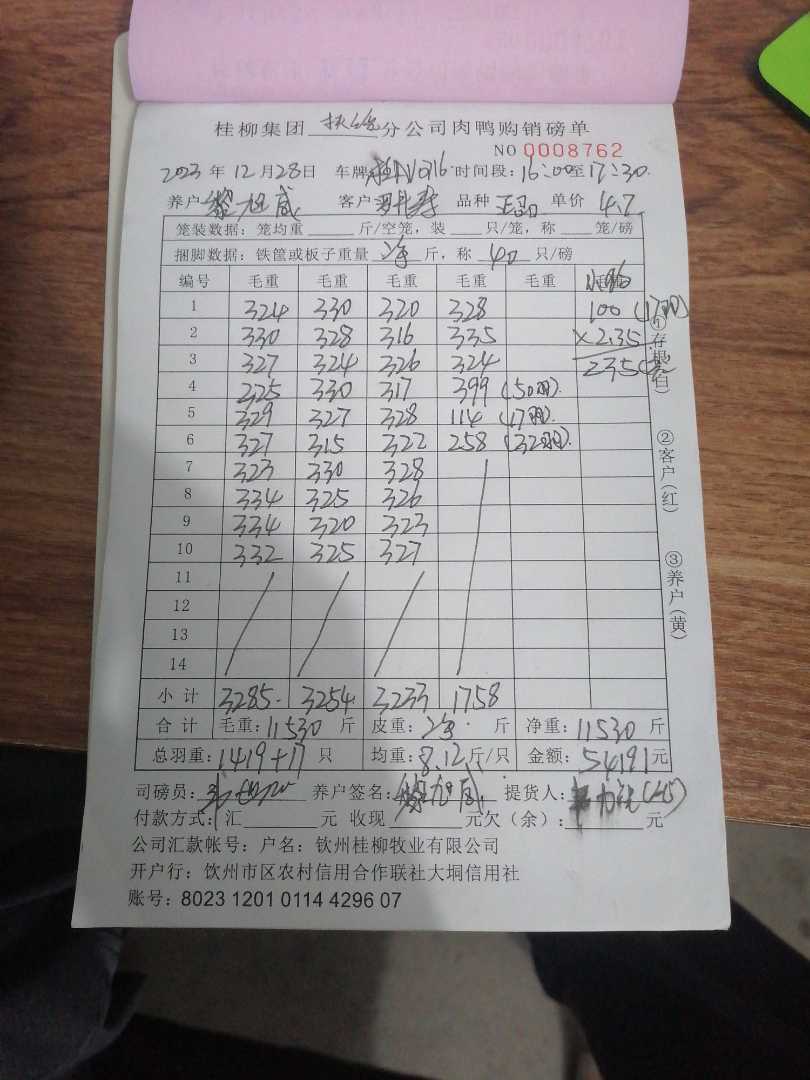 桂柳集团 扶绥 分公司肉鸭购销磅单
NO 0008762
2023 年 12 月 28 日 车牌 时间段: 16:00 至 17:30
养户 黎旭威 客户 品种 单价 4.7
笼装数据: 笼均重 斤/空笼, 装 只/笼, 称 笼/磅
捆脚数据: 铁筐或板子重量 净 斤, 称 40 只/磅
编号 毛重 毛重 毛重 毛重 毛重
1 324 330 320 328 100 (17羽)
2 330 328 316 335 ×2.35
3 327 324 326 324 235
4 225 330 317 399 (50羽).
5 329 327 328 114 (17羽).
6 327 315 322 258 (32羽).
7 323 330 328
8 334 325 326
9 334 320 323
10 332 325 327
11
12
13
14
小计 3285 3254 3233 1758
合计 毛重: 11530 斤 皮重: 净 斤 净重: 11530 斤
总羽重: 1419+17 只 均重: 8.12 斤/只 金额: 54191 元
司磅员: 养户签名: 黎旭威 提货人:
付款方式: 汇 元 收现 元欠(余): 元
公司汇款帐号: 户名: 钦州桂柳牧业有限公司
开户行: 钦州市区农村信用合作联社大垌信用社
账号: 8023 1201 0114 4296 07
①存根(白)
②客户(红)
③养户(黄)